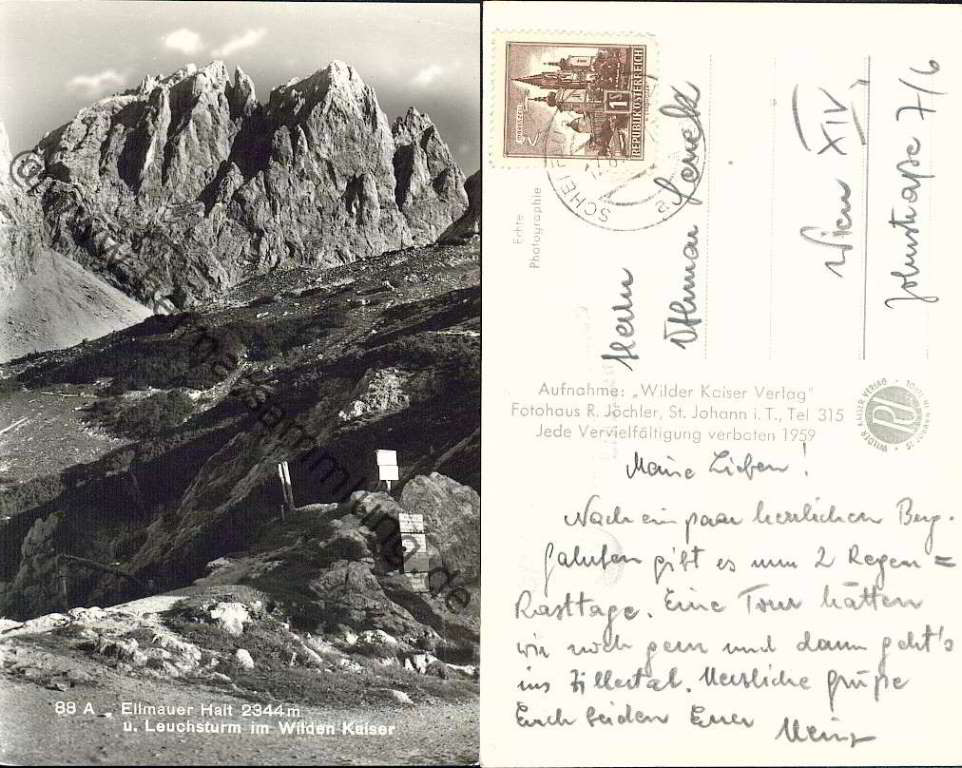 88 A „ Ellmauer Halt 2344m
u. Leuchsturm im Wilden Kaiser
REPUBLIK ÖSTERREICH
1S
Echte
Photographie
Herrn
Othmar
Wien XIV,
Johnstraße 7/6
Aufnahme: „Wilder Kaiser Verlag"
Fotohaus R. Jöchler, St. Johann i. T., Tel 315
Jede Vervielfältigung verboten 1959
WILDER KAISER VERLAG
Meine Lieben!
Nach ein paar herrlichen Berg-
fahrten gibt es nun 2 Regen=
Rasttage. Eine Tour hätten
wir noch gern und dann geht's
ins Zillertal. Herzliche Grüße
Euch beiden Euer
Heinz